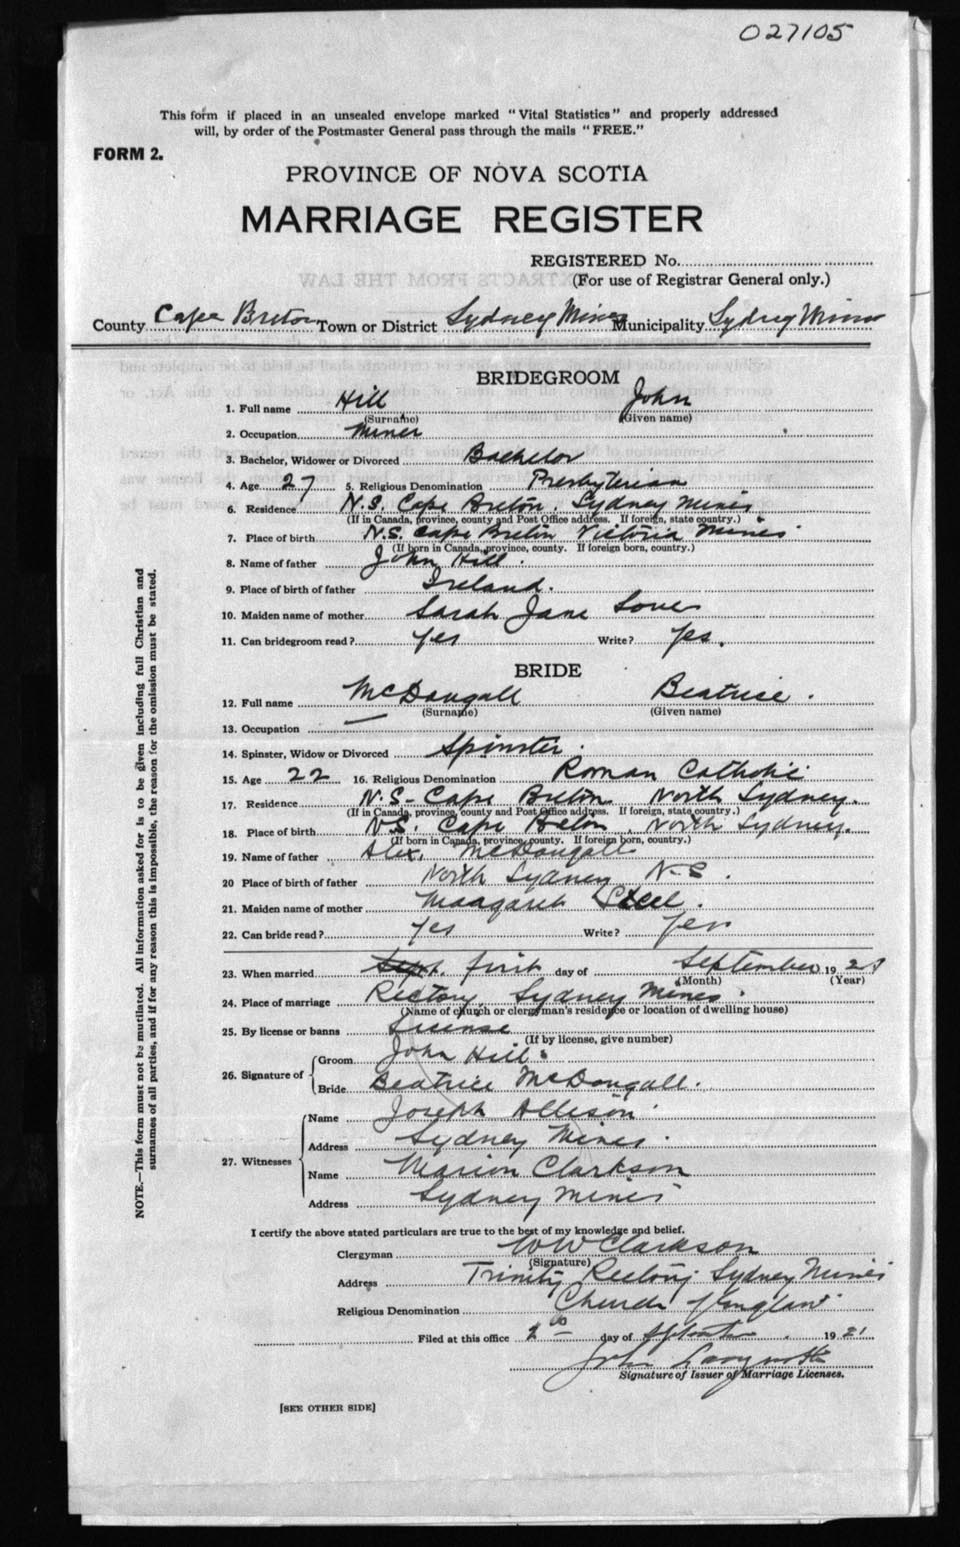 027105
This form if placed in an unsealed envelope marked "Vital Statistics" and properly addressed
will, by order of the Postmaster General pass through the mails "FREE."
FORM 2.
PROVINCE OF NOVA SCOTIA
MARRIAGE REGISTER
REGISTERED No.
(For use of Registrar General only.)
EXTRACTS FROM THE LAW
County Cape Breton Town or District Sydney Mines Municipality Sydney Mines
BRIDEGROOM
1. Full name Hill John
(Surname) (Given name)
2. Occupation Miner
3. Bachelor, Widower or Divorced Bachelor
4. Age 27 5. Religious Denomination Presbyterian
6. Residence N.S. Cape Breton. Sydney Mines
(If in Canada, province, county and Post Office address. If foreign, state country.)
7. Place of birth N.S. Cape Breton Victoria Mines
(If born in Canada, province, county. If foreign born, country.)
8. Name of father John Hill.
9. Place of birth of father Ireland.
10. Maiden name of mother Sarah Jane
11. Can bridegroom read? Yes Write? Yes.
BRIDE
12. Full name McDougall Beatrice.
(Surname) (Given name)
13. Occupation —
14. Spinster, Widow or Divorced Spinster.
15. Age 22 16. Religious Denomination Roman Catholic
17. Residence N.S- Cape Breton North Sydney.
(If in Canada, province, county and Post Office address. If foreign, state country.)
18. Place of birth N.S. Cape Breton North Sydney.
(If born in Canada, province, county. If foreign born, country.)
19. Name of father Alex. McDougall
20 Place of birth of father North Sydney N-S.
21. Maiden name of mother Maagaret Steel.
22. Can bride read? Yes Write? Yes
23. When married Sept. first day of September 1921
(Month) (Year)
24. Place of marriage Rectory. Sydney Mines.
(Name of church or clergyman's residence or location of dwelling house)
25. By license or banns License
(If by license, give number)
26. Signature of Groom John Hill.
Bride Beatrice McDougall.
27. Witnesses Name Joseph Allison
Address Sydney Mines.
Name Marion Clarkson
Address Sydney Mines
I certify the above stated particulars are true to the best of my knowledge and belief.
Clergyman W W Clarkson
(Signature)
Address Trinity Rectory Sydney Mines
Religious Denomination Church of England
Filed at this office 2nd day of September 1921
John
Signature of Issuer of Marriage Licenses.
[SEE OTHER SIDE]
NOTE.—This form must not be mutilated. All information asked for is to be given including full Christian and
surnames of all parties, and if for any reason this is impossible, the reason for the omission must be stated.